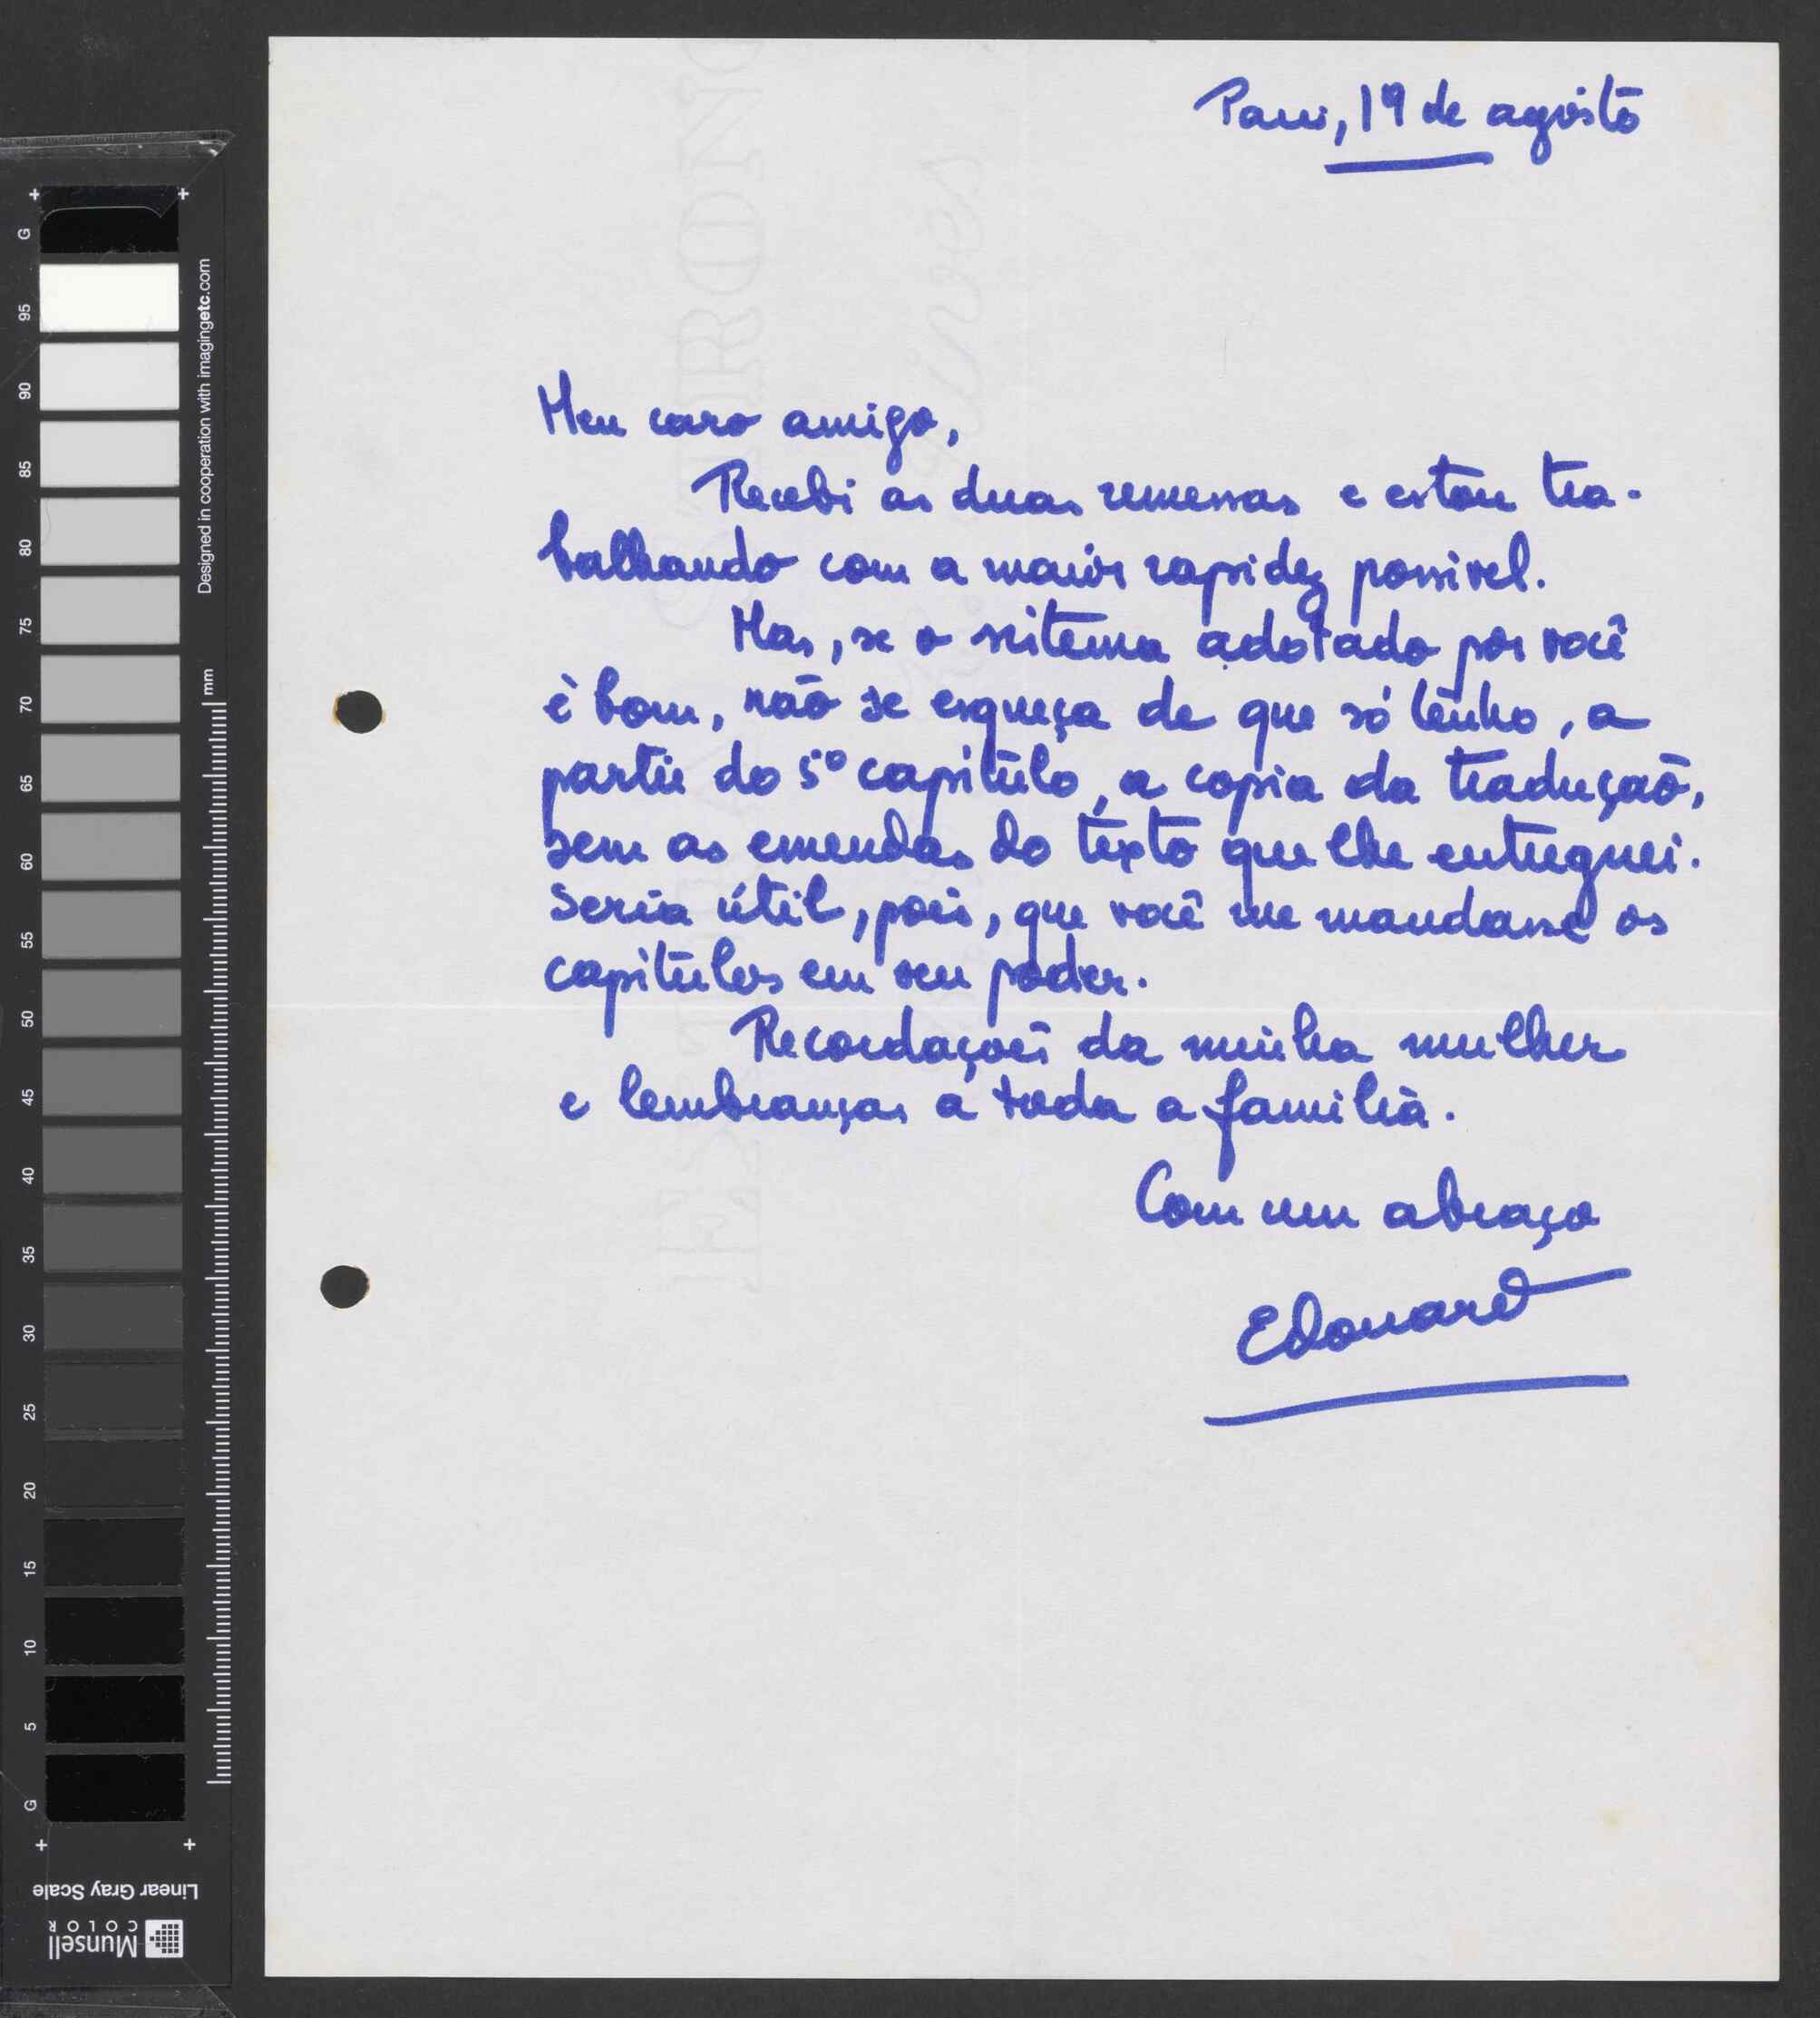 Paris, 19 de agosto
Meu caro amigo,
Recebi as duas remessas e estou tra-
balhando com a maior rapidez possivel.
Mas, se o sistema adotado por você
é bom, não se esqueça de que só tenho, a
partir do 5º capitulo, a copia da tradução,
sem as emendas do texto que lhe entreguei.
Seria útil, pois, que você me mandasse os
capitulos em seu poder.
Recordações da minha mulher
e lembranças a toda a familia.
Com um abraço
Edouard
G
95
90
85
80
75
70
65
60
55
50
45
40
35
30
25
20
15
10
5
G
Designed in cooperation with imagingetc.com
mm
Linear Gray Scale
Munsell
COLOR